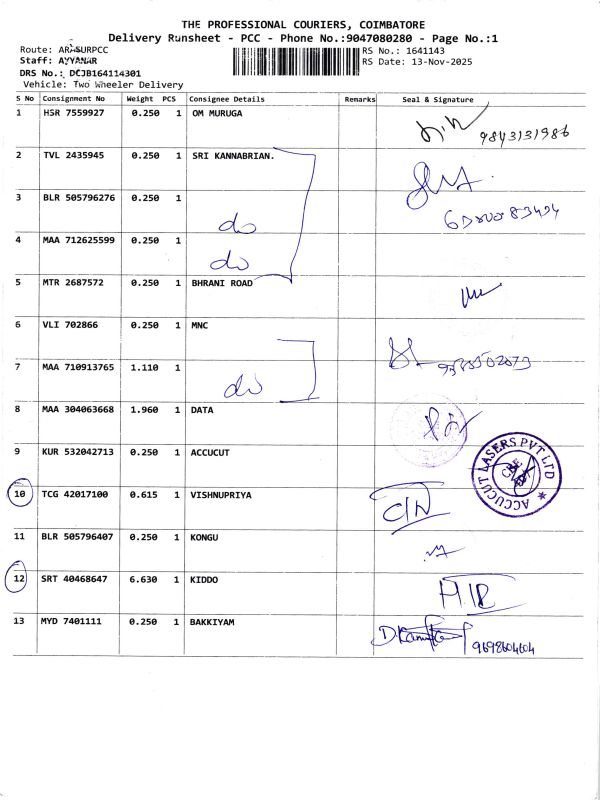 THE PROFESSIONAL COURIERS, COIMBATORE
Delivery Runsheet - PCC - Phone No.:9047080280 - Page No.:1
Route: ARASURPCC
RS No.: 1641143
Staff: AYYANAR
RS Date: 13-Nov-2025
DRS No.: DCJB164114301
Vehicle: Two Wheeler Delivery
S No Consignment No Weight PCS Consignee Details Remarks Seal & Signature
1 HSR 7559927 0.250 1 OM MURUGA
9843131986
2 TVL 2435945 0.250 1 SRI KANNABRIAN.
3 BLR 505796276 0.250 1
do
4 MAA 712625599 0.250 1
do
5 MTR 2687572 0.250 1 BHRANI ROAD
6 VLI 702866 0.250 1 MNC
7 MAA 710913765 1.110 1
do
8 MAA 304063668 1.960 1 DATA
9 KUR 532042713 0.250 1 ACCUCUT
ACCUCUT LASERS PVT LTD
CBE
10 TCG 42017100 0.615 1 VISHNUPRIYA
11 BLR 505796407 0.250 1 KONGU
12 SRT 40468647 6.630 1 KIDDO
13 MYD 7401111 0.250 1 BAKKIYAM
9698604604